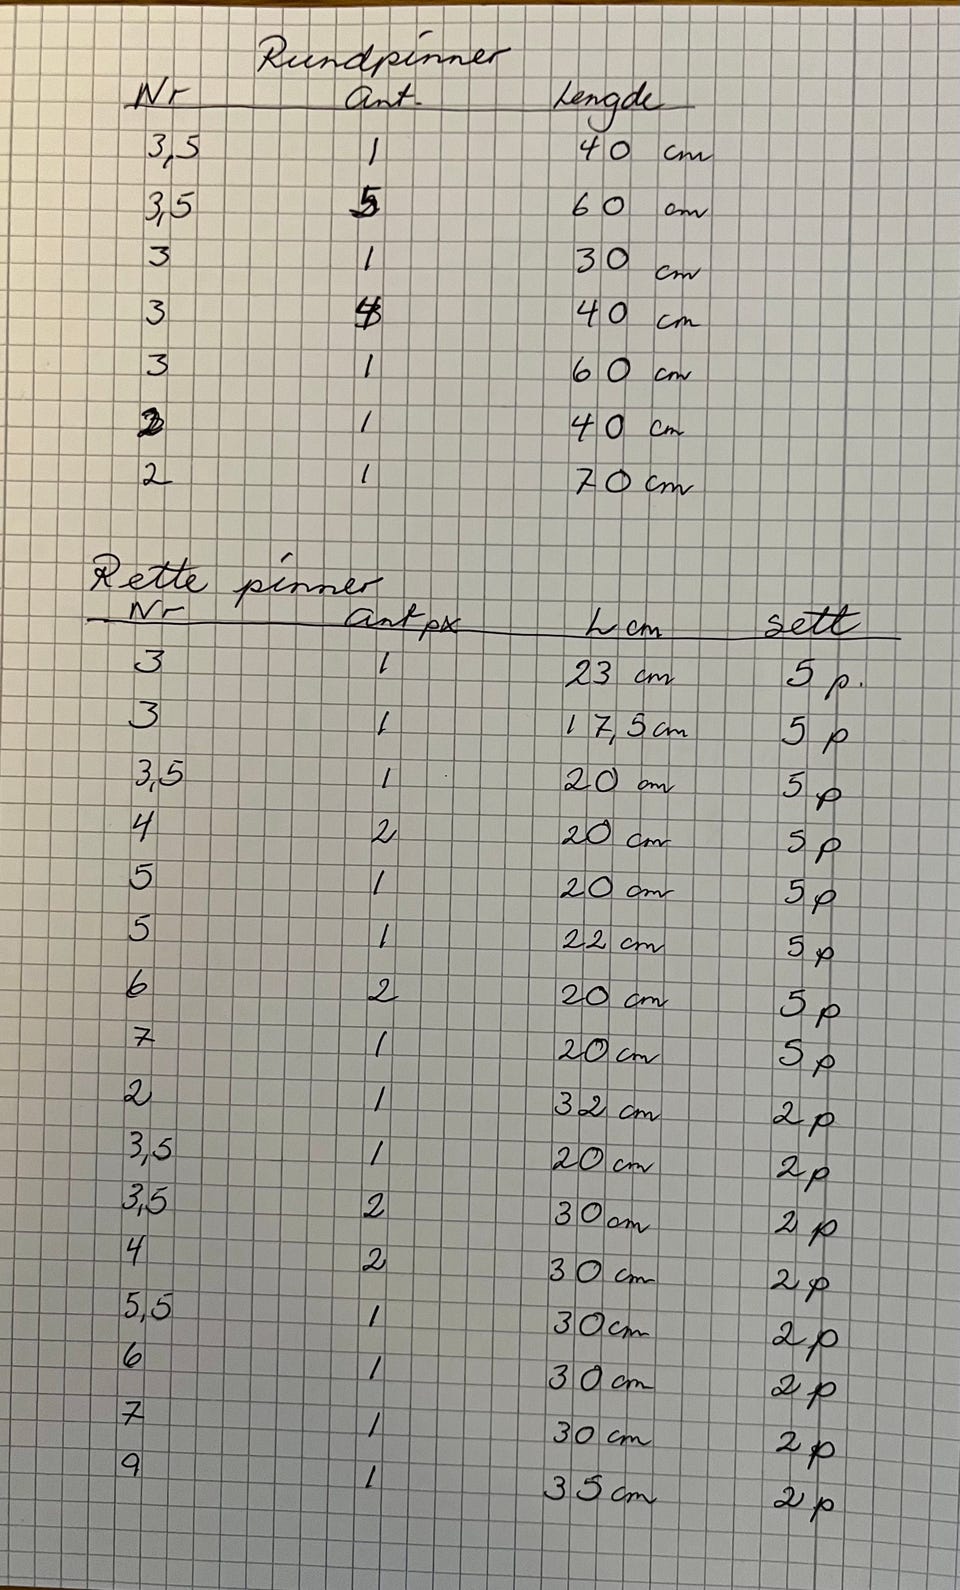 Rundpinner
Nr Ant. Lengde
3,5 1 40 cm
3,5 5 60 cm
3 1 30 cm
3 4 40 cm
3 1 60 cm
2 1 40 cm
2 1 70 cm
Rette pinner
Nr Ant px L cm sett
3 1 23 cm 5 p.
3 1 17,5 cm 5 p
3,5 1 20 cm 5 p
4 2 20 cm 5 p
5 1 20 cm 5 p
5 1 22 cm 5 p
6 2 20 cm 5 p
7 1 20 cm 5 p
2 1 32 cm 2 p
3,5 1 20 cm 2 p
3,5 2 30 cm 2 p
4 2 30 cm 2 p
5,5 1 30 cm 2 p
6 1 30 cm 2 p
7 1 30 cm 2 p
9 1 35 cm 2 p